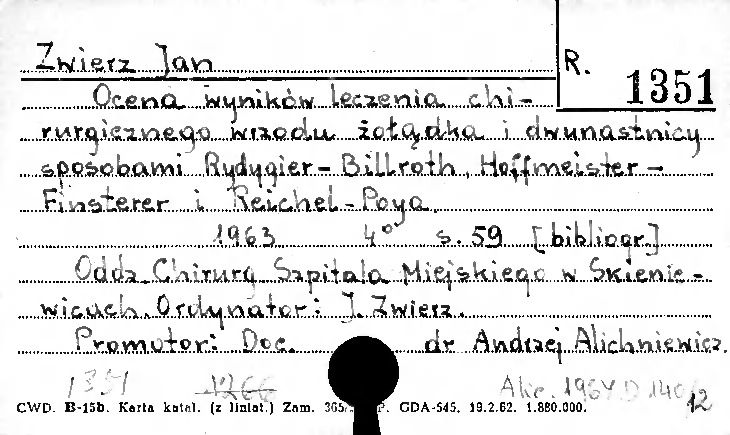 Zwierz Jan
R. 1351
Ocena wyników leczenia chi-
rurgicznego wrzodu żołądka i dwunastnicy
sposobami Rydygier-Billroth, Hoffmeister-
Finsterer i Reichel-Poya.
1963 4° s. 59 [bibliogr.]
Oddz. Chirurg. Szpitala Miejskiego w Skiernie-
wicach. Ordynator: J. Zwierz.
Promotor: Doc. dr Andrzej Alichniewicz.
1351 1266 Akc. 1964 D 140/12
CWD. B-15b. Karta katal. (z liniat.) Zam. P. GDA-545. 19.2.62. 1.880.000.